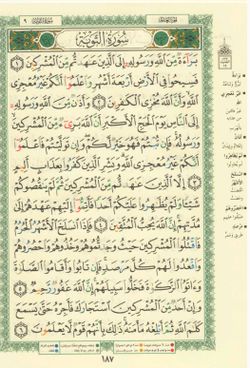 سُورَةُ التَّوْبَةِ
بَرَاءَةٌ مِّنَ اللَّهِ وَرَسُولِهِ إِلَى الَّذِينَ عَاهَدتُّم مِّنَ الْمُشْرِكِينَ ١
فَسِيحُوا فِي الْأَرْضِ أَرْبَعَةَ أَشْهُرٍ وَاعْلَمُوا أَنَّكُمْ غَيْرُ مُعْجِزِي
اللَّهِ وَأَنَّ اللَّهَ مُخْزِي الْكَافِرِينَ ٢ وَأَذَانٌ مِّنَ اللَّهِ وَرَسُولِهِ
إِلَى النَّاسِ يَوْمَ الْحَجِّ الْأَكْبَرِ أَنَّ اللَّهَ بَرِيءٌ مِّنَ الْمُشْرِكِينَ
وَرَسُولُهُ فَإِن تُبْتُمْ فَهُوَ خَيْرٌ لَّكُمْ وَإِن تَوَلَّيْتُمْ فَاعْلَمُوا
أَنَّكُمْ غَيْرُ مُعْجِزِي اللَّهِ وَبَشِّرِ الَّذِينَ كَفَرُوا بِعَذَابٍ أَلِيمٍ
٣ إِلَّا الَّذِينَ عَاهَدتُّم مِّنَ الْمُشْرِكِينَ ثُمَّ لَمْ يَنقُصُوكُمْ
شَيْئًا وَلَمْ يُظَاهِرُوا عَلَيْكُمْ أَحَدًا فَأَتِمُّوا إِلَيْهِمْ عَهْدَهُمْ إِلَى
مُدَّتِهِمْ إِنَّ اللَّهَ يُحِبُّ الْمُتَّقِينَ ٤ فَإِذَا انسَلَخَ الْأَشْهُرُ الْحُرُمُ
فَاقْتُلُوا الْمُشْرِكِينَ حَيْثُ وَجَدتُّمُوهُمْ وَخُذُوهُمْ وَاحْصُرُوهُمْ
وَاقْعُدُوا لَهُمْ كُلَّ مَرْصَدٍ فَإِن تَابُوا وَأَقَامُوا الصَّلَاةَ
وَآتَوُا الزَّكَاةَ فَخَلُّوا سَبِيلَهُمْ إِنَّ اللَّهَ غَفُورٌ رَّحِيمٌ ٥
وَإِنْ أَحَدٌ مِّنَ الْمُشْرِكِينَ اسْتَجَارَكَ فَأَجِرْهُ حَتَّىٰ يَسْمَعَ
كَلَامَ اللَّهِ ثُمَّ أَبْلِغْهُ مَأْمَنَهُ ذَٰلِكَ بِأَنَّهُمْ قَوْمٌ لَّا يَعْلَمُونَ ٦
١٨٧